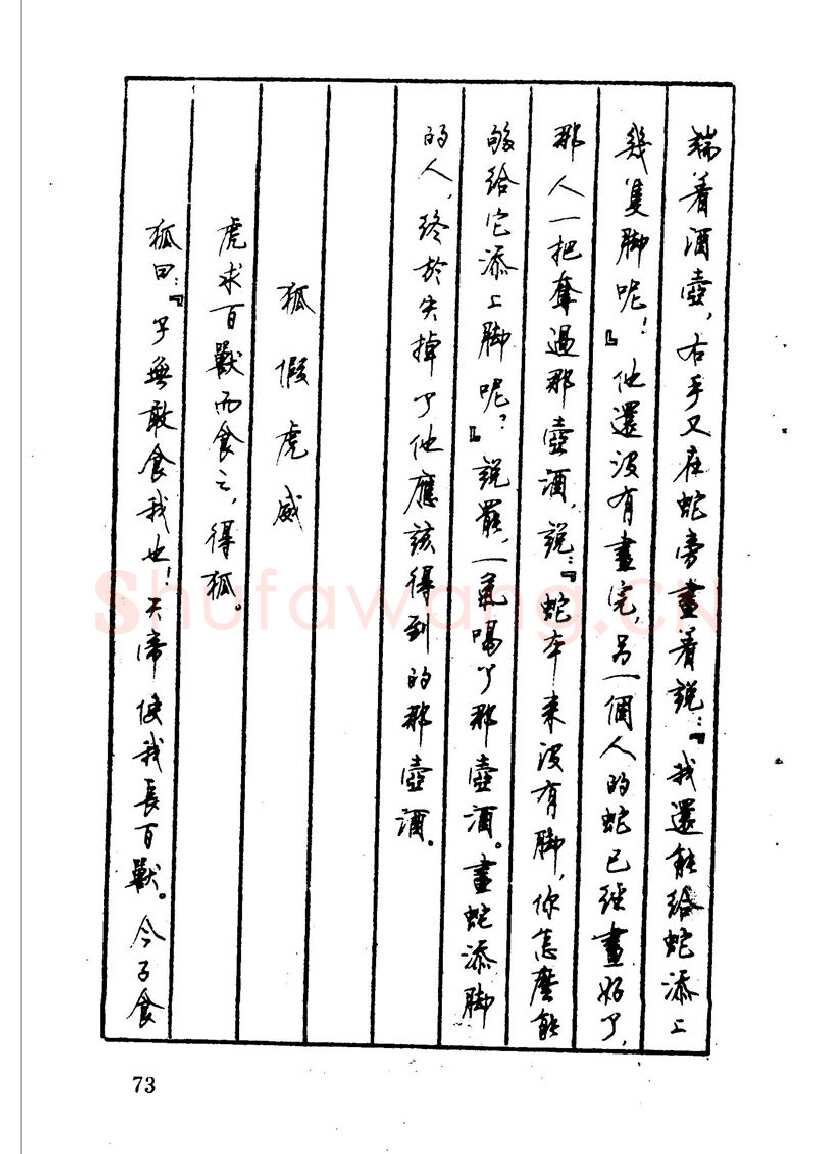 端着酒壺，右手又在蛇旁畫着説：『我還能給蛇添上
幾隻脚呢！』他還没有畫完，另一個人的蛇已經畫好了，
那人一把奪過那壺酒，説：『蛇本来没有脚，你怎麽能
够給它添上脚呢？』説罷，一氣喝了那壺酒。畫蛇添脚
的人，終於失掉了他應該得到的那壺酒。
狐假虎威
虎求百獸而食之，得狐。
狐曰：『子無敢食我也！天帝使我長百獸。今子食
73
Shufawang.CN